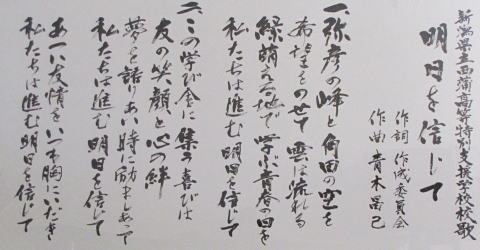 新潟県立西蒲高等特別支援学校校歌
明日を信じて
作詞 作成委員会
作曲 青木昌己
一、弥彦の峰と角田の空を
希望をのせて雲は流れる
緑萌える地で学ぶ青春の日を
私たちは進む明日を信じて
二、この学び舎に集う喜びは
友の笑顔と心の絆
夢を語りあい時に励ましあって
私たちは進む明日を信じて
あつい友情をいつも胸にいだき
私たちは進む明日を信じて